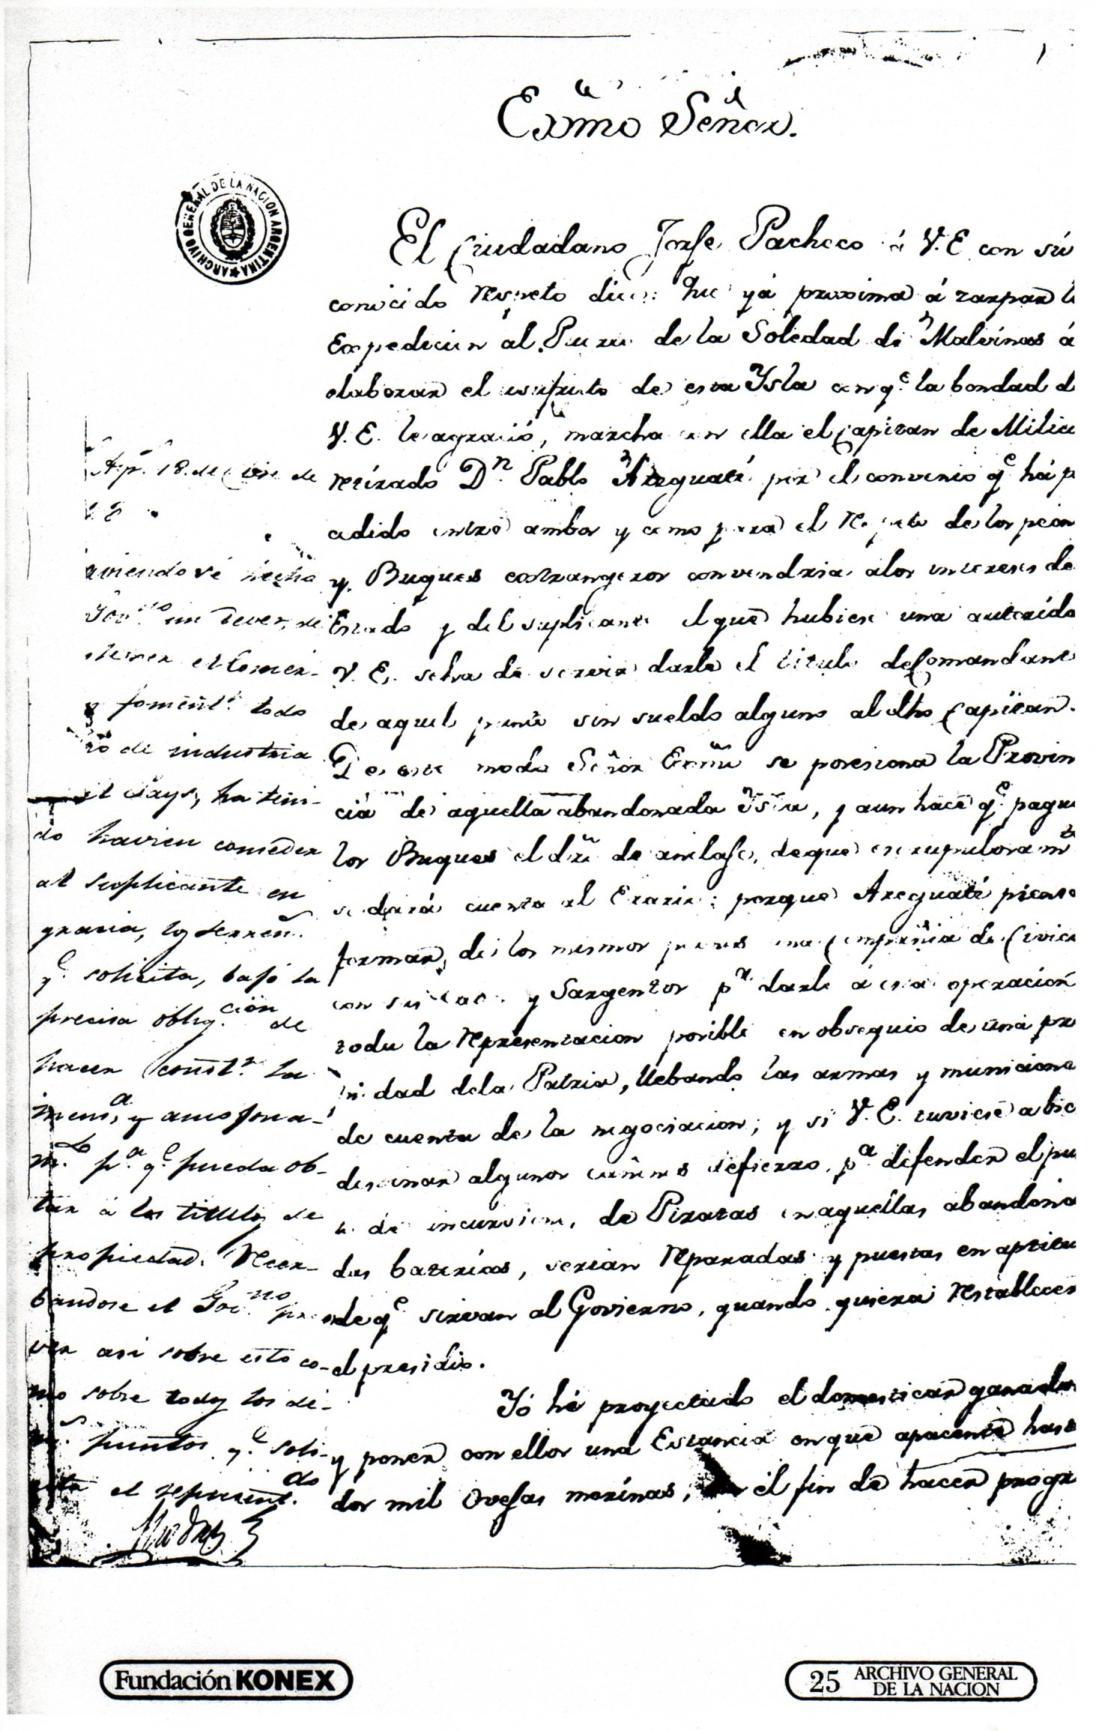 Exmo Señor.
ARCHIVO GENERAL DE LA NACION ARGENTINA
El Ciudadano Jorse Pacheco á V.E con sú
conocido respeto dice: Que yá proxima á zarpar l
Expedicion al Puerto de la Soledad de Malvinas á
elaborar el usufruto de esta Ysla con qe. la bondad d
V.E. le agració, marcha en ella el Capitan de Milicia
retirado Dn. Pablo Areguatí por el convenio qe há p
cedido entre ambos y como para el respeto de los peon
y Buques extrangeros convendria á los intereses de
Estado y del suplicante el que hubiese una autorida
V.E. se ha de servir darle el titulo de Comandante
de aquel punto sin sueldo alguno al dho Capitan.
De este modo Señor Exmo se posesiona la Provin
cia de aquella abandonada Ysla, y aun hace qe. pague
los Buques el dro de anclaje, de que escrupulosamte
se dará cuenta al Erario: porque Areguatí piensa
formar, de los mismos peones una Compañia de Civico
con sus Cabos y Sargentos pa. darle á esa operación
toda la representacion posible en obsequio de una pr
dad de la Patria, llebando las armas y municione
de cuenta de la negociacion; y si V.E. tuviese a bie
destinar algunos cañones de fierro, pa. defender el pu
to de incursion, de Piratas en aquellas abandona
das baterías, serian reparadas y puestas en aptitu
de qe. sirvan al Govierno, quando quiera restablecer
el presidio.
Yó hé proyectado el domesticar ganado
y poner con ellos una Estancia en que apacente hast
dos mil Ovejas merinas, el fin de hacer progr
18. de de
un dever de
el Comer-
y foment. todo
de industria
el Pays, ha teni-
do havien conceder
al suplicante en
gracia, los terren.s
qe. solicita, bajo la
precisa obligacion de
hacer const.r la
mens.a y amojona-
m.to pa. qe. pueda ob-
tar á los titulos de
propiedad. Reser-
bandose el Govno pro
ver asi sobre esto co-
mo sobre todos los de-
mas puntos qe. soli-
cita el represent.do
Fundación KONEX
25 ARCHIVO GENERAL
DE LA NACION